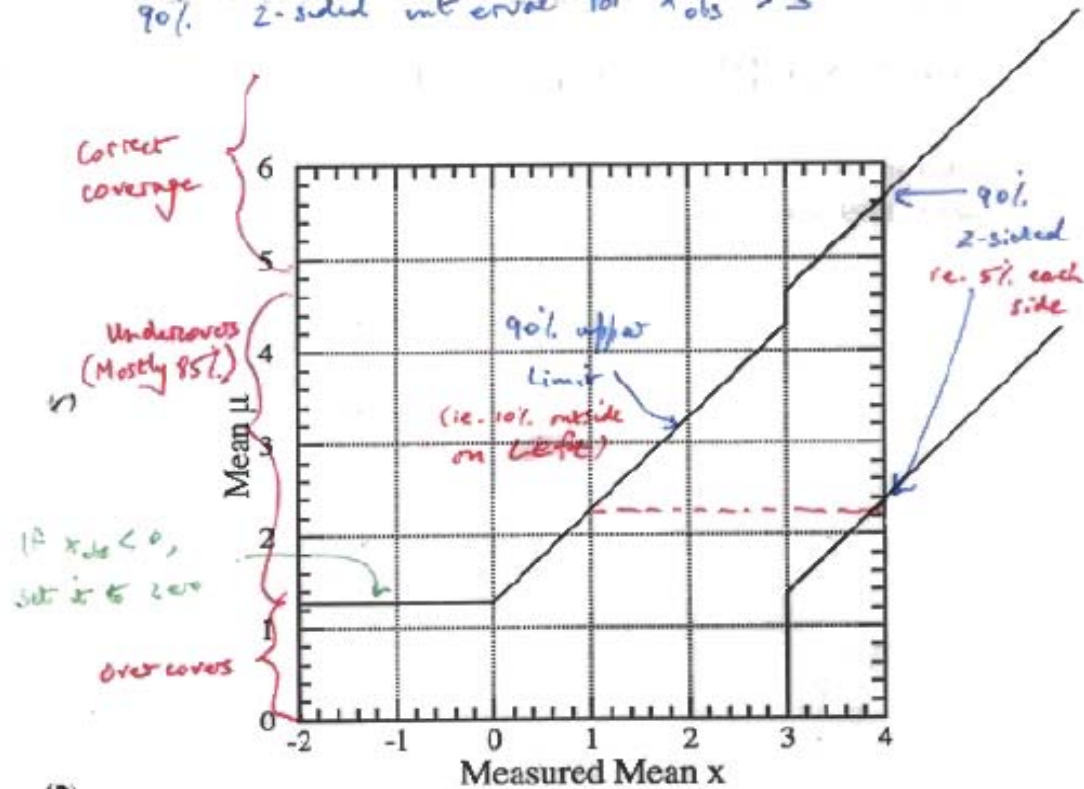 90% 2-sided interval for x obs > 3
Correct
coverage
Undercovers
(Mostly 85%)
If x obs < 0,
set it to zero
Over covers
90% upper
Limit
(ie. 10% outside
on Left)
90%
2-sided
ie. 5% each
side
6
5
4
3
2
1
0
Mean μ
-2 -1 0 1 2 3 4
Measured Mean x